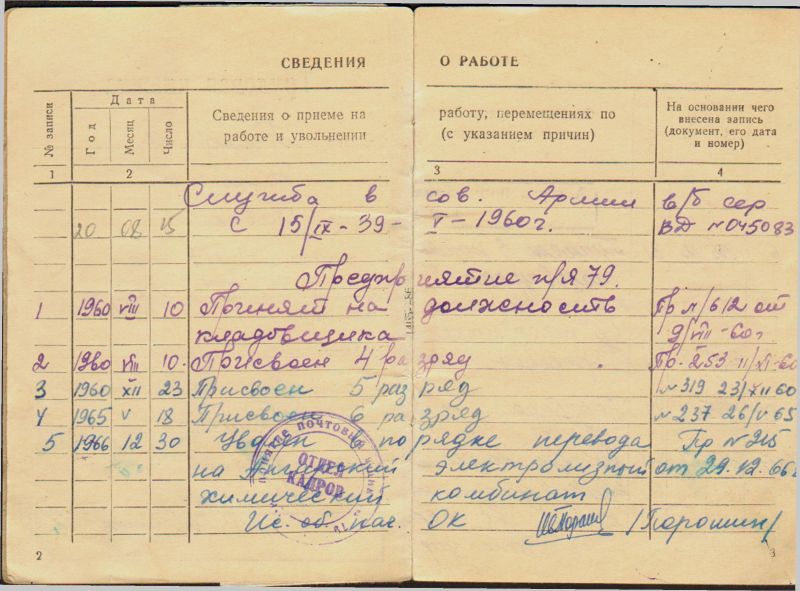 СВЕДЕНИЯ О РАБОТЕ
№ записи
Дата
Год
Месяц
Число
Сведения о приеме на работу, перемещениях по
работе и увольнении (с указанием причин)
На основании чего
внесена запись
(документ, его дата
и номер)
1 2 3 4
Служба в сов. Армии в/б сер
20 08 15 с 15/IX-39- V-1960г. ВД №045083
Предприятие п/я 79.
1 1960 VIII 10 Принят на должность Пр л/612 от
кладовщика 9/VIII-60г.
2 1960 VIII 10. Присвоен 4 разряд Пр. 253 11/XI-60
3 1960 XII 23 Присвоен 5 разряд №319 23/XII 60
4 1965 V 18 Присвоен 6 разряд №237 26/V 65
5 1966 12 30 Уволен в порядке перевода Пр №215
на Ангарский электролизный от 29.12.66г
химический комбинат
Ис. об. нач. ОК /Порошин/
ОТДЕЛ
КАДРОВ
ПОЧТОВЫЙ ЯЩИК
2
3